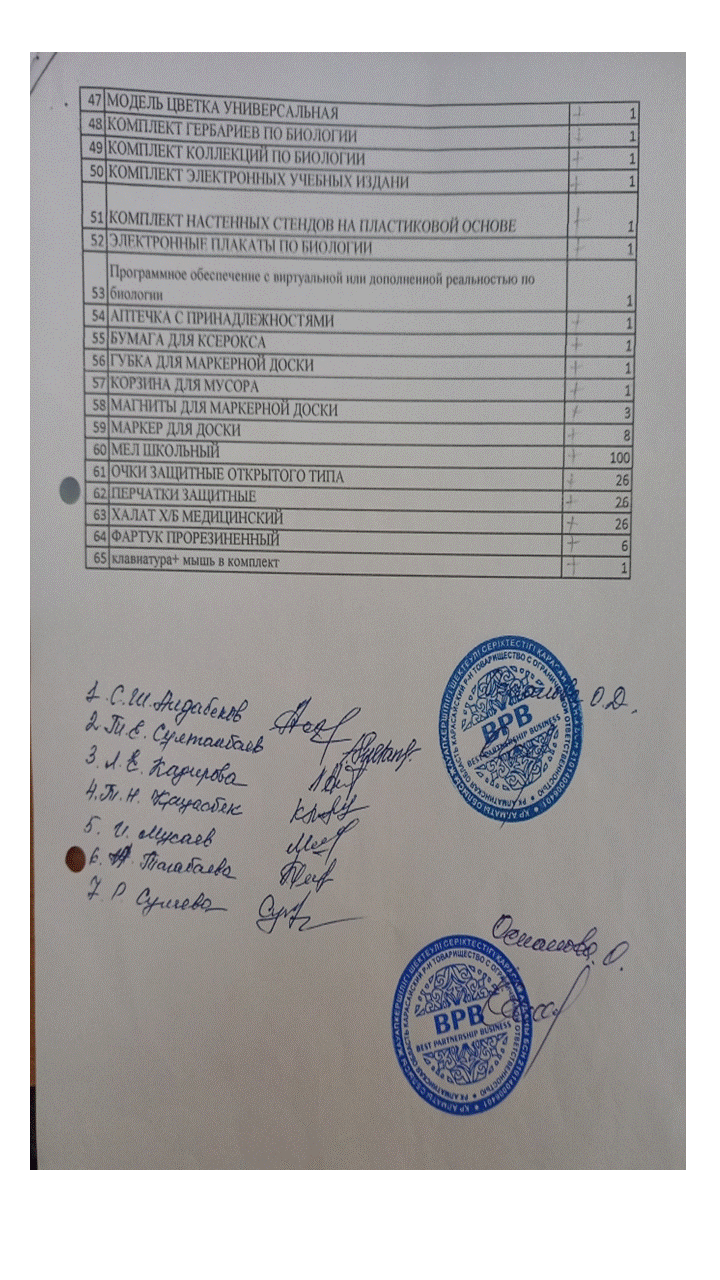 47 МОДЕЛЬ ЦВЕТКА УНИВЕРСАЛЬНАЯ + 1
48 КОМПЛЕКТ ГЕРБАРИЕВ ПО БИОЛОГИИ + 1
49 КОМПЛЕКТ КОЛЛЕКЦИЙ ПО БИОЛОГИИ + 1
50 КОМПЛЕКТ ЭЛЕКТРОННЫХ УЧЕБНЫХ ИЗДАНИ + 1
51 КОМПЛЕКТ НАСТЕННЫХ СТЕНДОВ НА ПЛАСТИКОВОЙ ОСНОВЕ + 1
52 ЭЛЕКТРОННЫЕ ПЛАКАТЫ ПО БИОЛОГИИ + 1
Программное обеспечение с виртуальной или дополненной реальностью по
53 биологии 1
54 АПТЕЧКА С ПРИНАДЛЕЖНОСТЯМИ + 1
55 БУМАГА ДЛЯ КСЕРОКСА + 1
56 ГУБКА ДЛЯ МАРКЕРНОЙ ДОСКИ + 1
57 КОРЗИНА ДЛЯ МУСОРА + 1
58 МАГНИТЫ ДЛЯ МАРКЕРНОЙ ДОСКИ + 3
59 МАРКЕР ДЛЯ ДОСКИ + 8
60 МЕЛ ШКОЛЬНЫЙ + 100
61 ОЧКИ ЗАЩИТНЫЕ ОТКРЫТОГО ТИПА + 26
62 ПЕРЧАТКИ ЗАЩИТНЫЕ + 26
63 ХАЛАТ Х/Б МЕДИЦИНСКИЙ + 26
64 ФАРТУК ПРОРЕЗИНЕННЫЙ + 6
65 клавиатура+ мышь в комплект + 1
1. С.Ш. Айдабеков
2. Т.Е. Султанбаев
3. Л.Е. Кадирова
4. Т.Н.
5. И. Мусаев
6. Тагабаева
7. Р. Сулиева
О.Д.
BPB
BEST PARTNERSHIP BUSINESS
Османова О.
BPB
BEST PARTNERSHIP BUSINESS